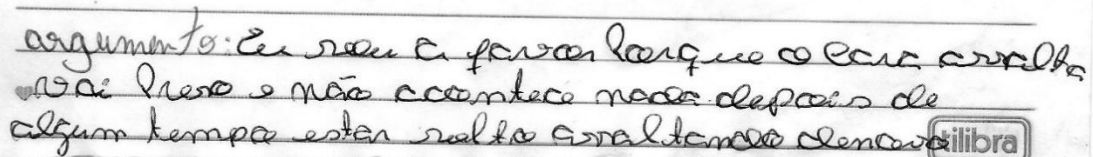 argumento: Eu sou a favor porque o cara assalta
vai preso e não acontece nada depois de
algum tempo estar solto assaltando denovo
tilibra